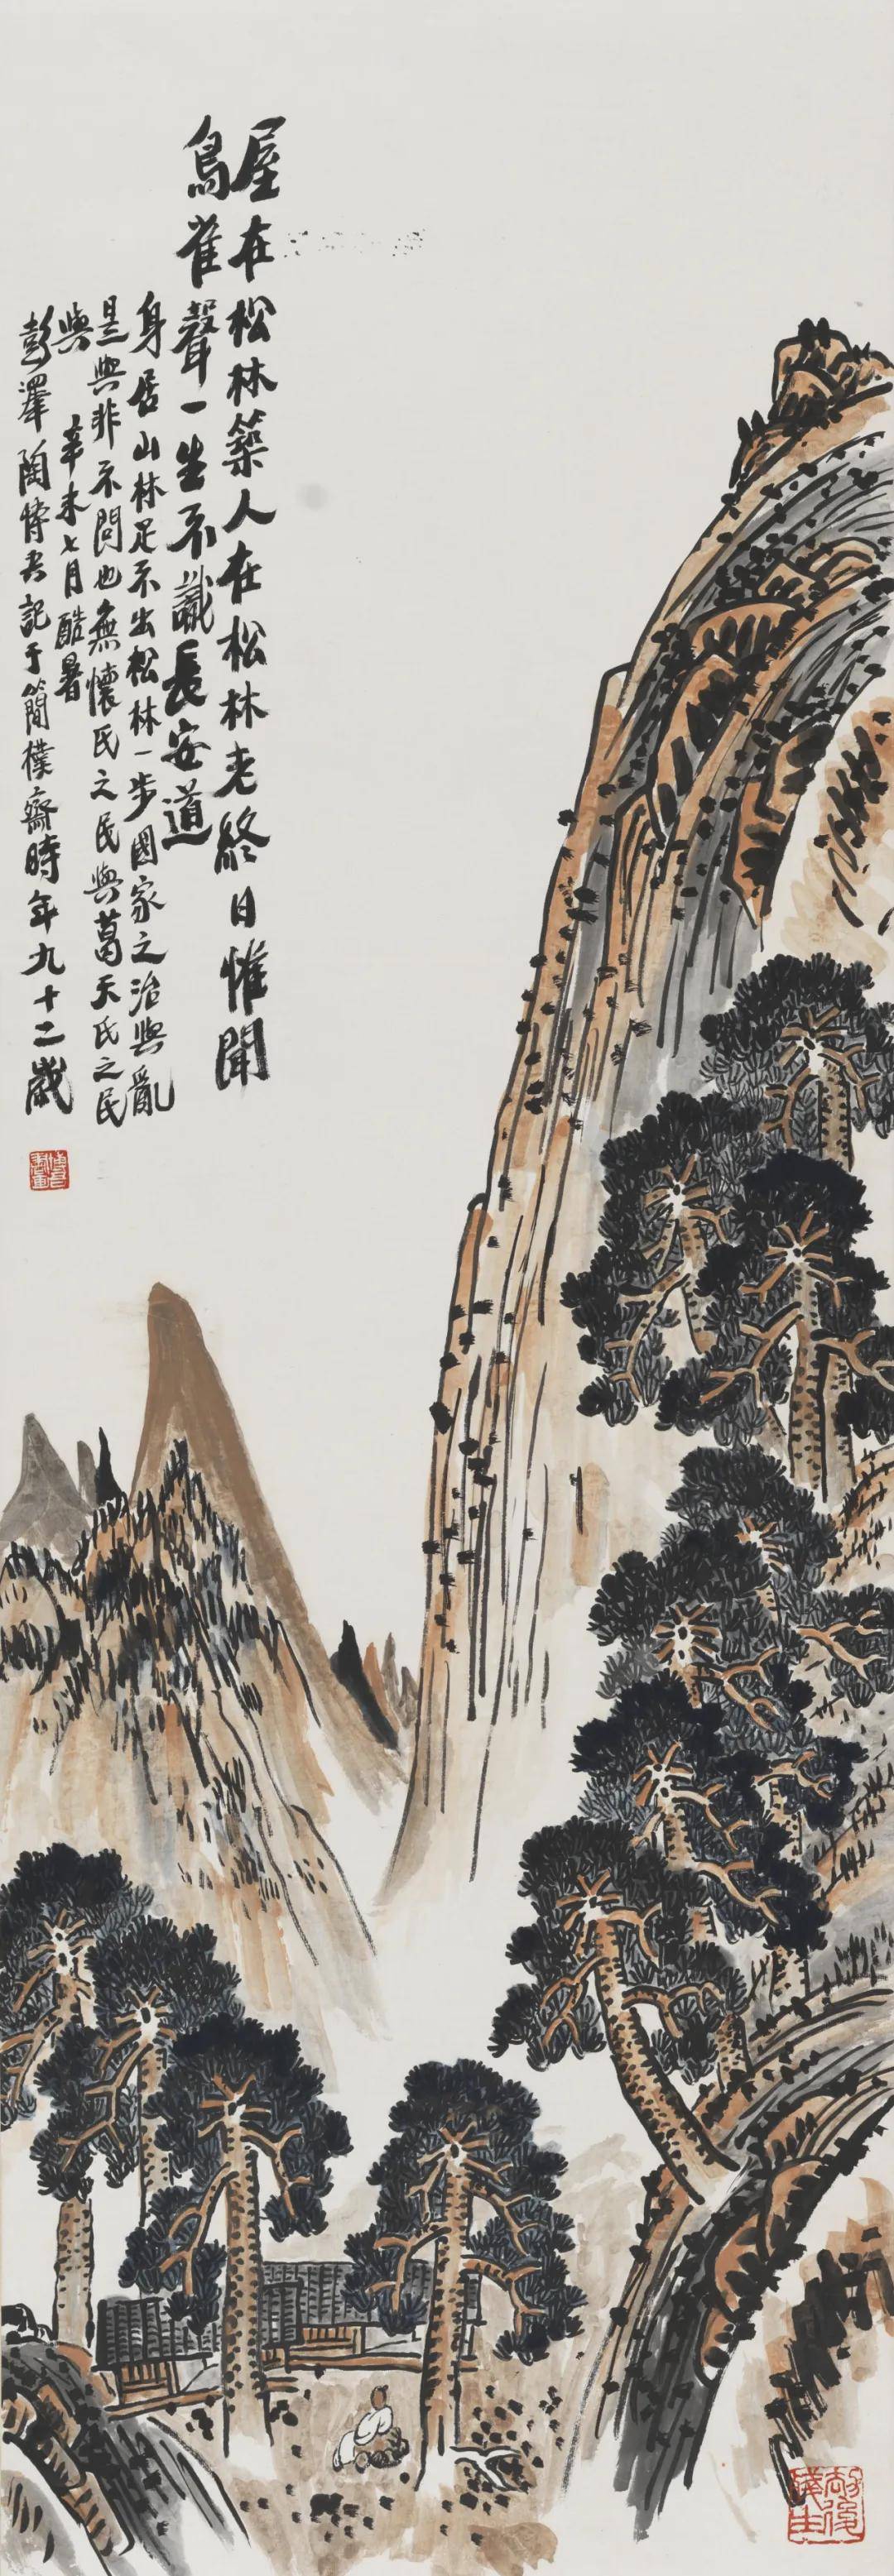 屋在松林築人在松林老終日惟聞
鳥雀聲一生不識長安道
身居山林足不出松林一步國家之治與亂
是與非不問也無懷氏之民與葛天氏之民
與
辛未七月酷暑
彭澤陶博吾記于簡樸齋時年九十二歲
博吾